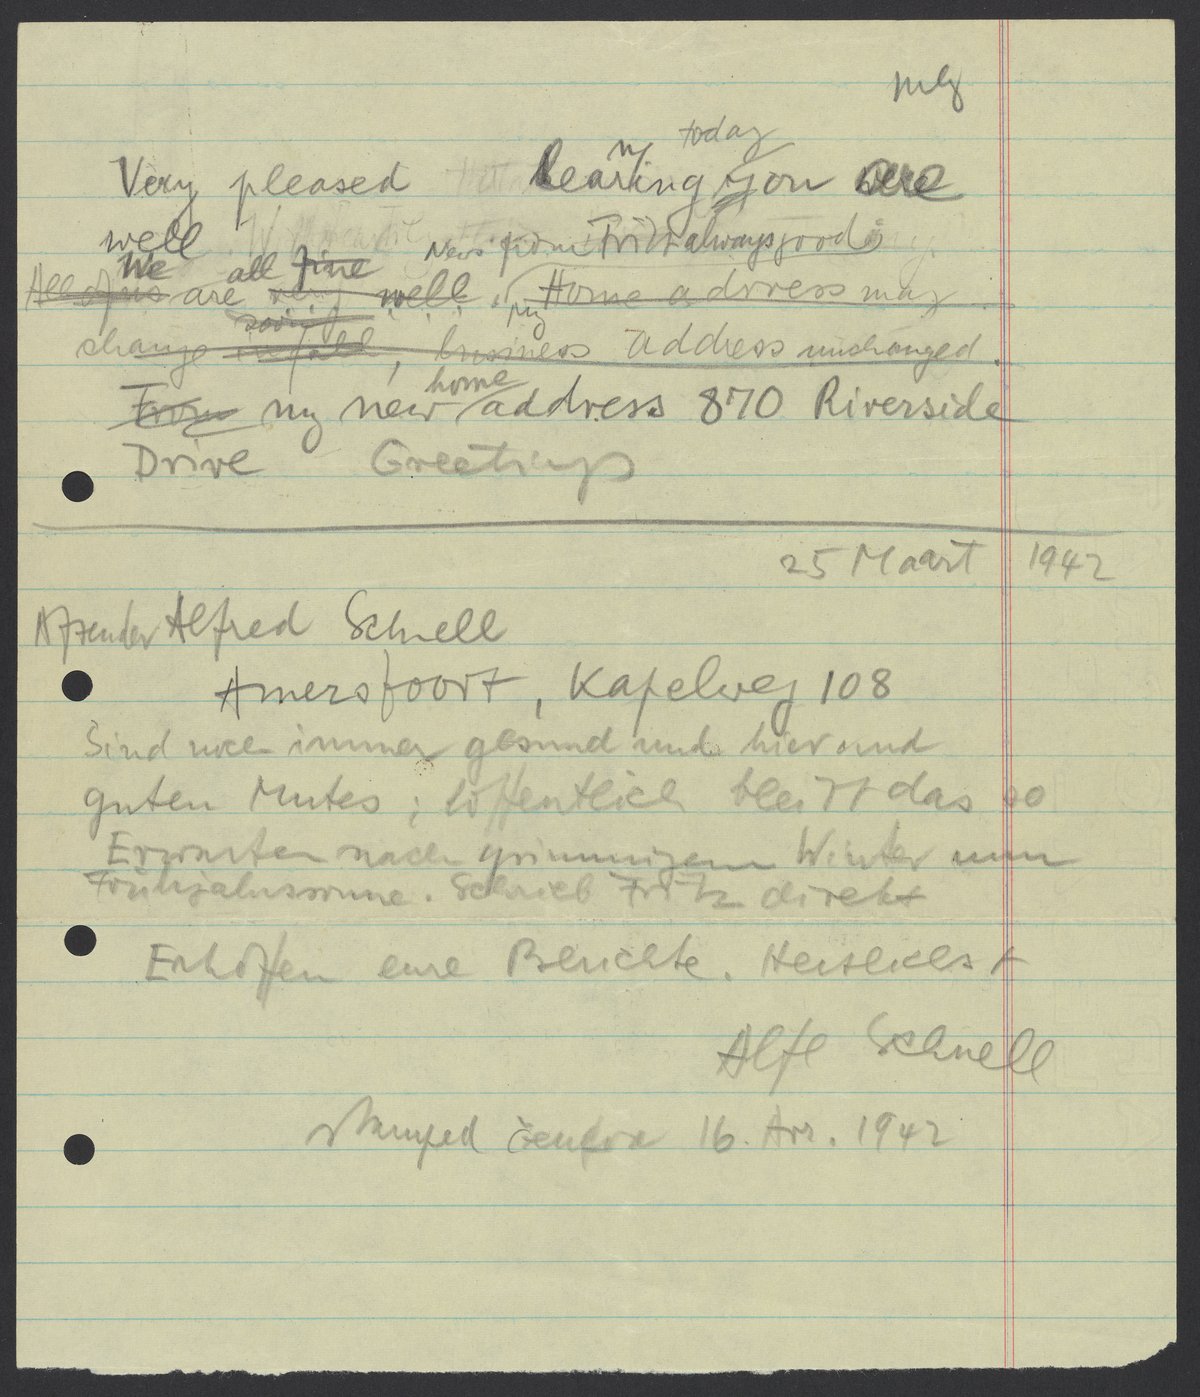 today
Very pleased hearing you were
well. News from Fritz always good
We all fine
All of us are very well. Home address may
soon my
change in fall, business address unchanged.
home
From my new address 870 Riverside
Drive Greetings
25 Maart 1942
Afzender Alfred Schnell
Amersfoort, Kapelweg 108
Sind noch immer gesund und hier und
guten Mutes; hoffentlich bleibt das so
Erwarten nach grimmigem Winter nun
Frühjahrssonne. Schrieb Fritz direkt
Erhoffen eure Berichte. Herzlichst
Alfr Schnell
stamped 16. Apr. 1942